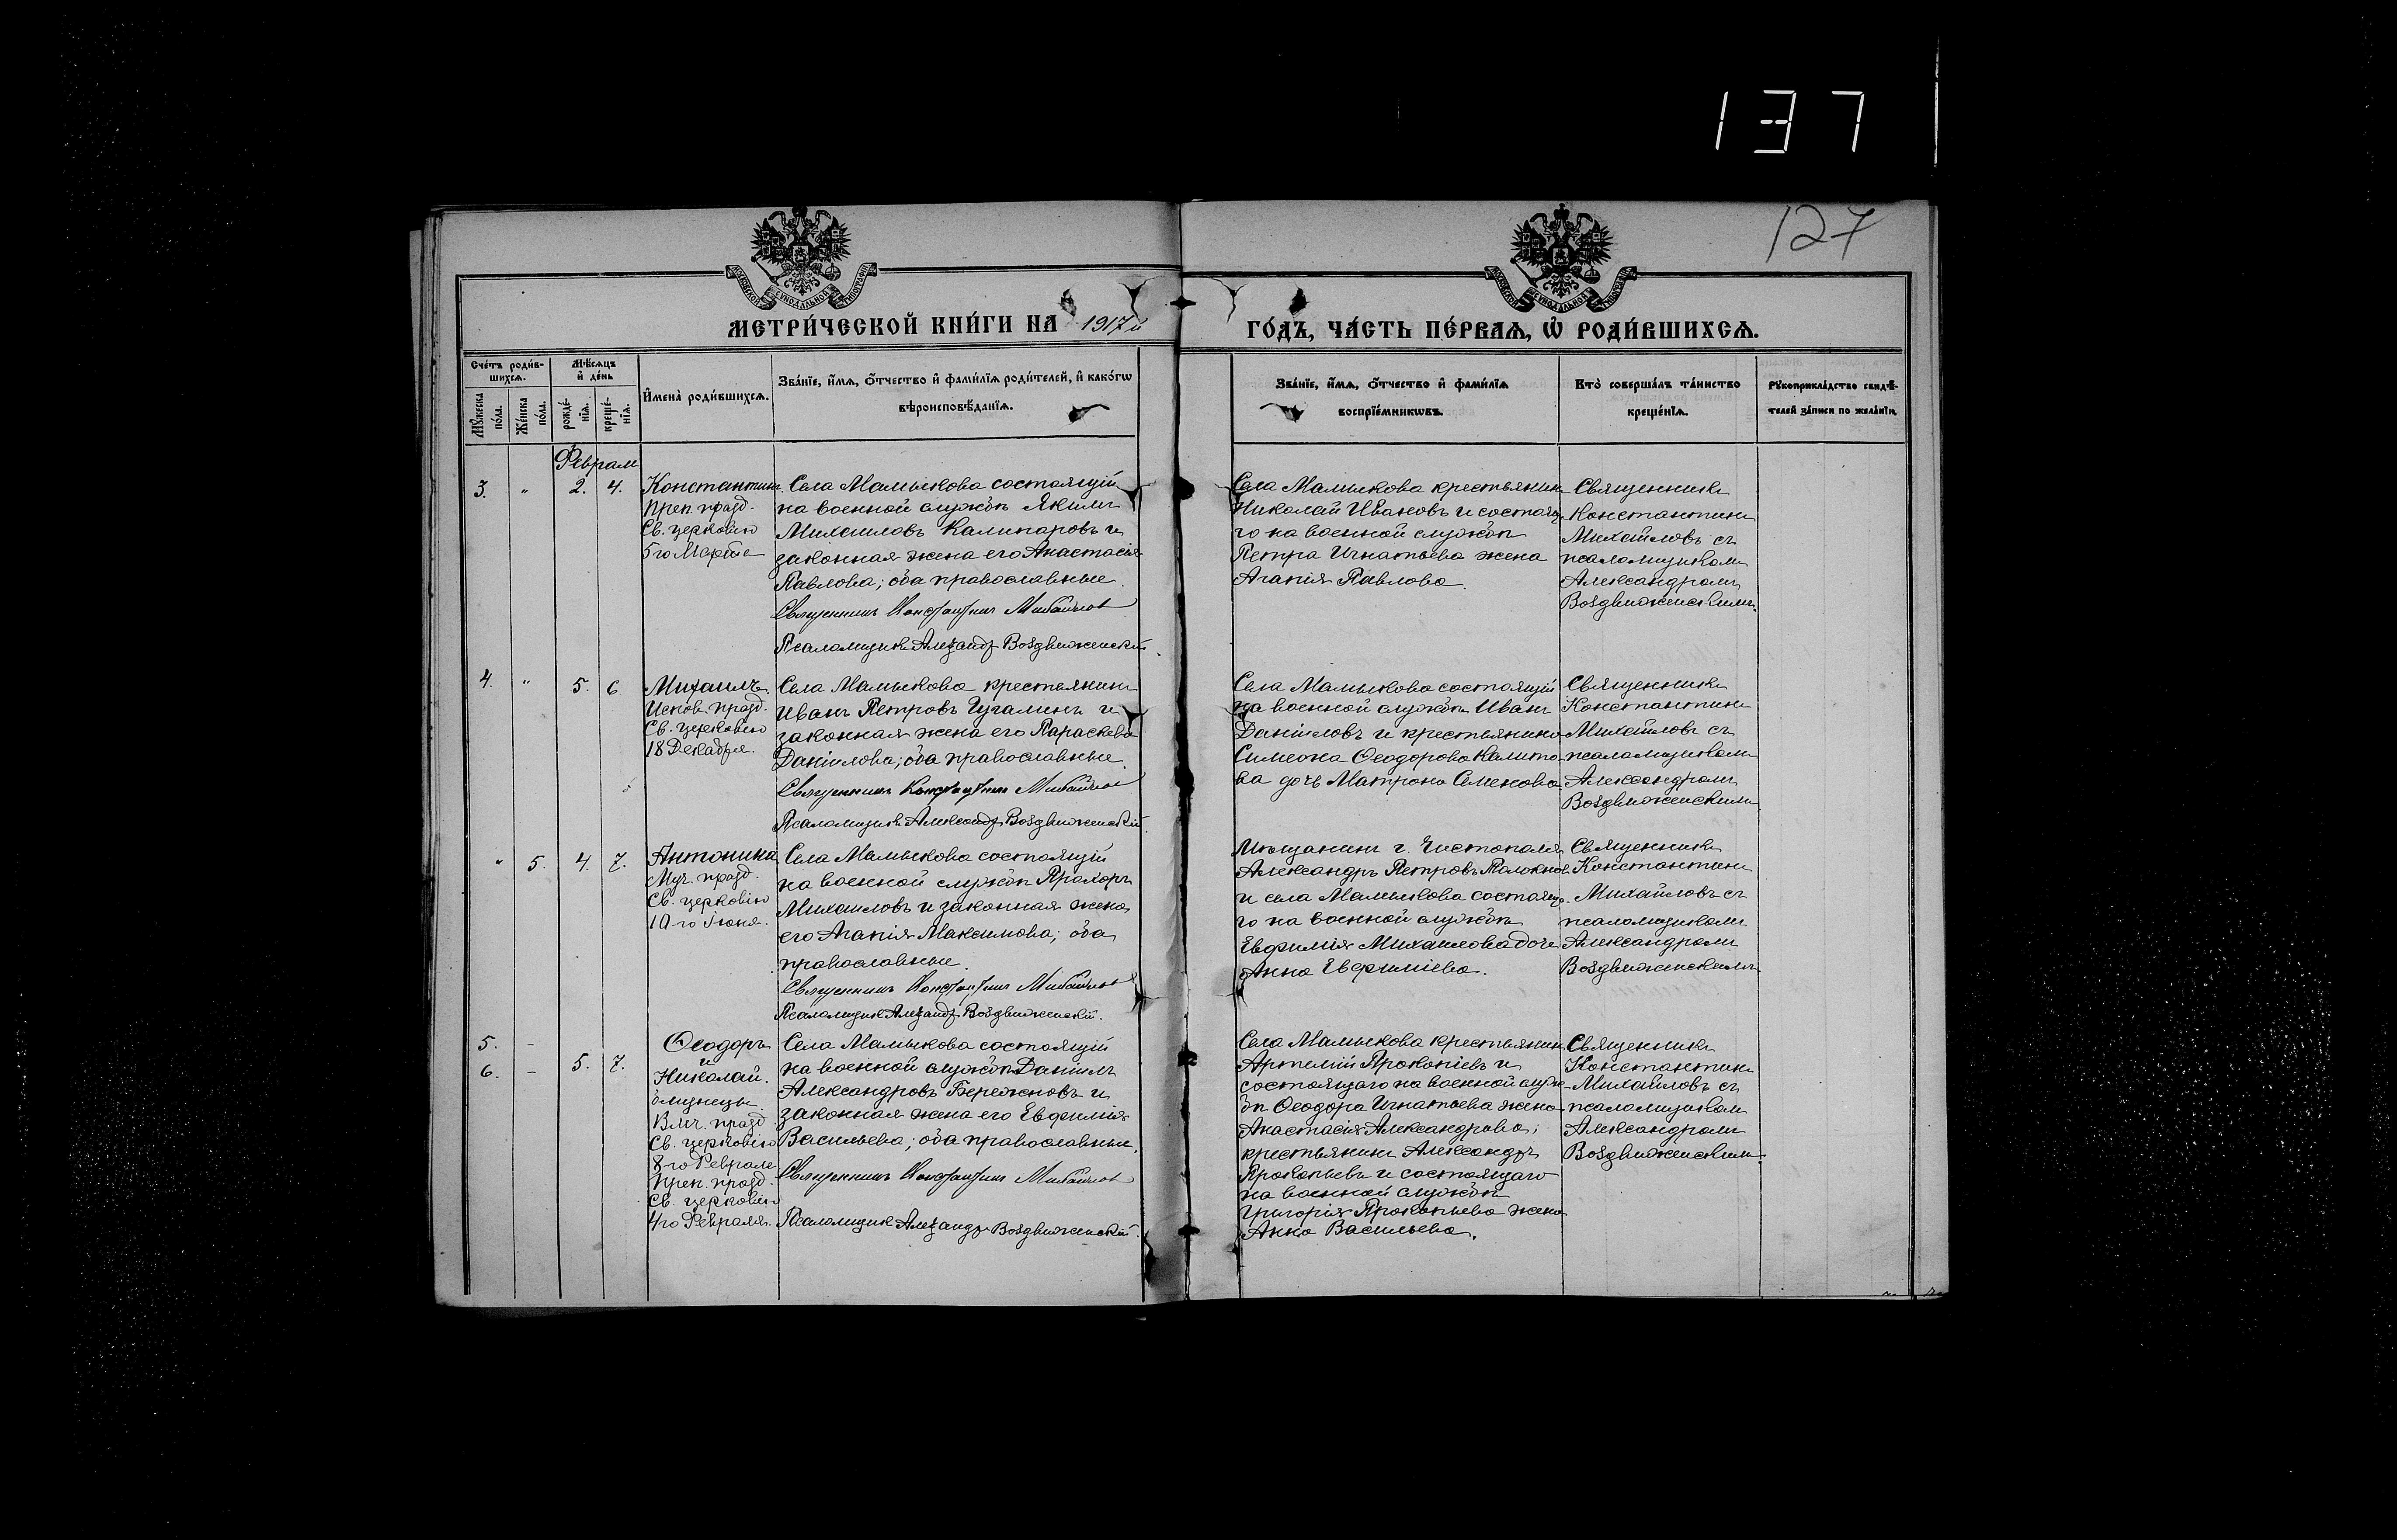 137
127
МОСКОВСКОЙ СѴНОДАЛЬНОЙ ТИПОГРАФІИ
МОСКОВСКОЙ СѴНОДАЛЬНОЙ ТИПОГРАФІИ
МЕТРИ́ЧЕСКОЙ КНИ́ГИ НА 1917й
ГО́ДЪ, ЧА́СТЬ ПЕ́РВАѦ, Ѡ҆ РОДИ́ВШИХСѦ.
Сче́тъ роди́в-
шихсѧ.
Мꙋ́жеска
по́ла.
Же́нска
по́ла.
Мѣ́сѧцъ
и҆ де́нь
рожде́-
нїѧ.
креще́-
нїѧ.
И҆мена̀ роди́вшихсѧ.
Зва́нїе, и҆́мѧ, ѻ҆́тчество и҆ фами́лїѧ роди́телей, и҆ како́гѡ
вѣроисповѣ́данїѧ.
Зва́нїе, и҆́мѧ, ѻ҆́тчество и҆ фами́лїѧ
воспрїе́мникѡвъ.
Кто̀ соверша́лъ та́инство
креще́нїѧ.
Рꙋкоприкла́дство свидѣ́-
телей за́писи по жела́нїю.
Февраль
3. " 2. 4.
Константинъ
Преп. празд.
Св. церковію
5го Марта
Села Мамыкова состоящій
на военной службѣ Якимъ
Михаиловъ Калинаровъ и
законная жена его Анастасія
Павлова; оба православные.
Священникъ Константинъ Михайловъ
Псаломщикъ Александръ Воздвиженскій
Села Мамыкова крестьянинъ
Николай Ивановъ и состояща-
го на военной службѣ
Петра Игнатьева жена
Агапія Павлова.
Священникъ
Константинъ
Михайловъ съ
псаломщикомъ
Александромъ
Воздвиженскимъ.
4. " 5. 6
Михаилъ
Испов. празд.
Св. церковію
18 Декабря.
Села Мамыкова крестьянинъ
Иванъ Петровъ Чугалинъ и
законная жена его Параскева
Даніилова; оба православные.
Священникъ Константинъ Михайловъ
Псаломщикъ Александръ Воздвиженскій.
Села Мамыкова состоящій
на военной службѣ Иванъ
Даніиловъ и крестьянина
Симеона Ѳеодорова Калито-
ва дочь Матрона Семенова
Священникъ
Константинъ
Михайловъ съ
псаломщикомъ
Александромъ
Воздвиженскимъ
" 5. 4. 7.
Антонина
Муч. празд.
Св. церковію
10-го Іюня.
Села Мамыкова состоящій
на военной службѣ Прохоръ
Михаиловъ и законная жена
его Агапія Максимова; оба
православные.
Священникъ Константинъ Михайловъ
Псаломщикъ Александръ Воздвиженскій.
Мѣщанинъ г. Чистополя
Александръ Петровъ
и села Мамыкова состояща-
го на военной службѣ
Евфимія Михаилова дочь
Анна Евфиміева.
Священникъ
Константинъ
Михайловъ съ
псаломщикомъ
Александромъ
Воздвиженскимъ
5. -
6. - 5. 7.
Ѳеодоръ
и
Николай.
близнецы.
Влмч. празд.
Св. церковію
8-го Февраля
Преп. празд.
Св. церковію
4го Февраля.
Села Мамыкова состоящій
на военной службѣ Даніилъ
Александровъ Бережновъ и
законная жена его Евфимія
Васильева; оба православные.
Священникъ Константинъ Михайловъ
Псаломщикъ Александръ Воздвиженскій.
Села Мамыкова крестьянинъ
Артемій Прокопіевъ и
состоящаго на военной служ-
бѣ Ѳеодора Игнатьева жена
Анастасія Александрова;
крестьянинъ Александръ
Прокопьевъ и состоящаго
на военной службѣ
Григорія Прокопьева жена
Анна Васильева.
Священникъ
Константинъ
Михайловъ съ
псаломщикомъ
Александромъ
Воздвиженскимъ.